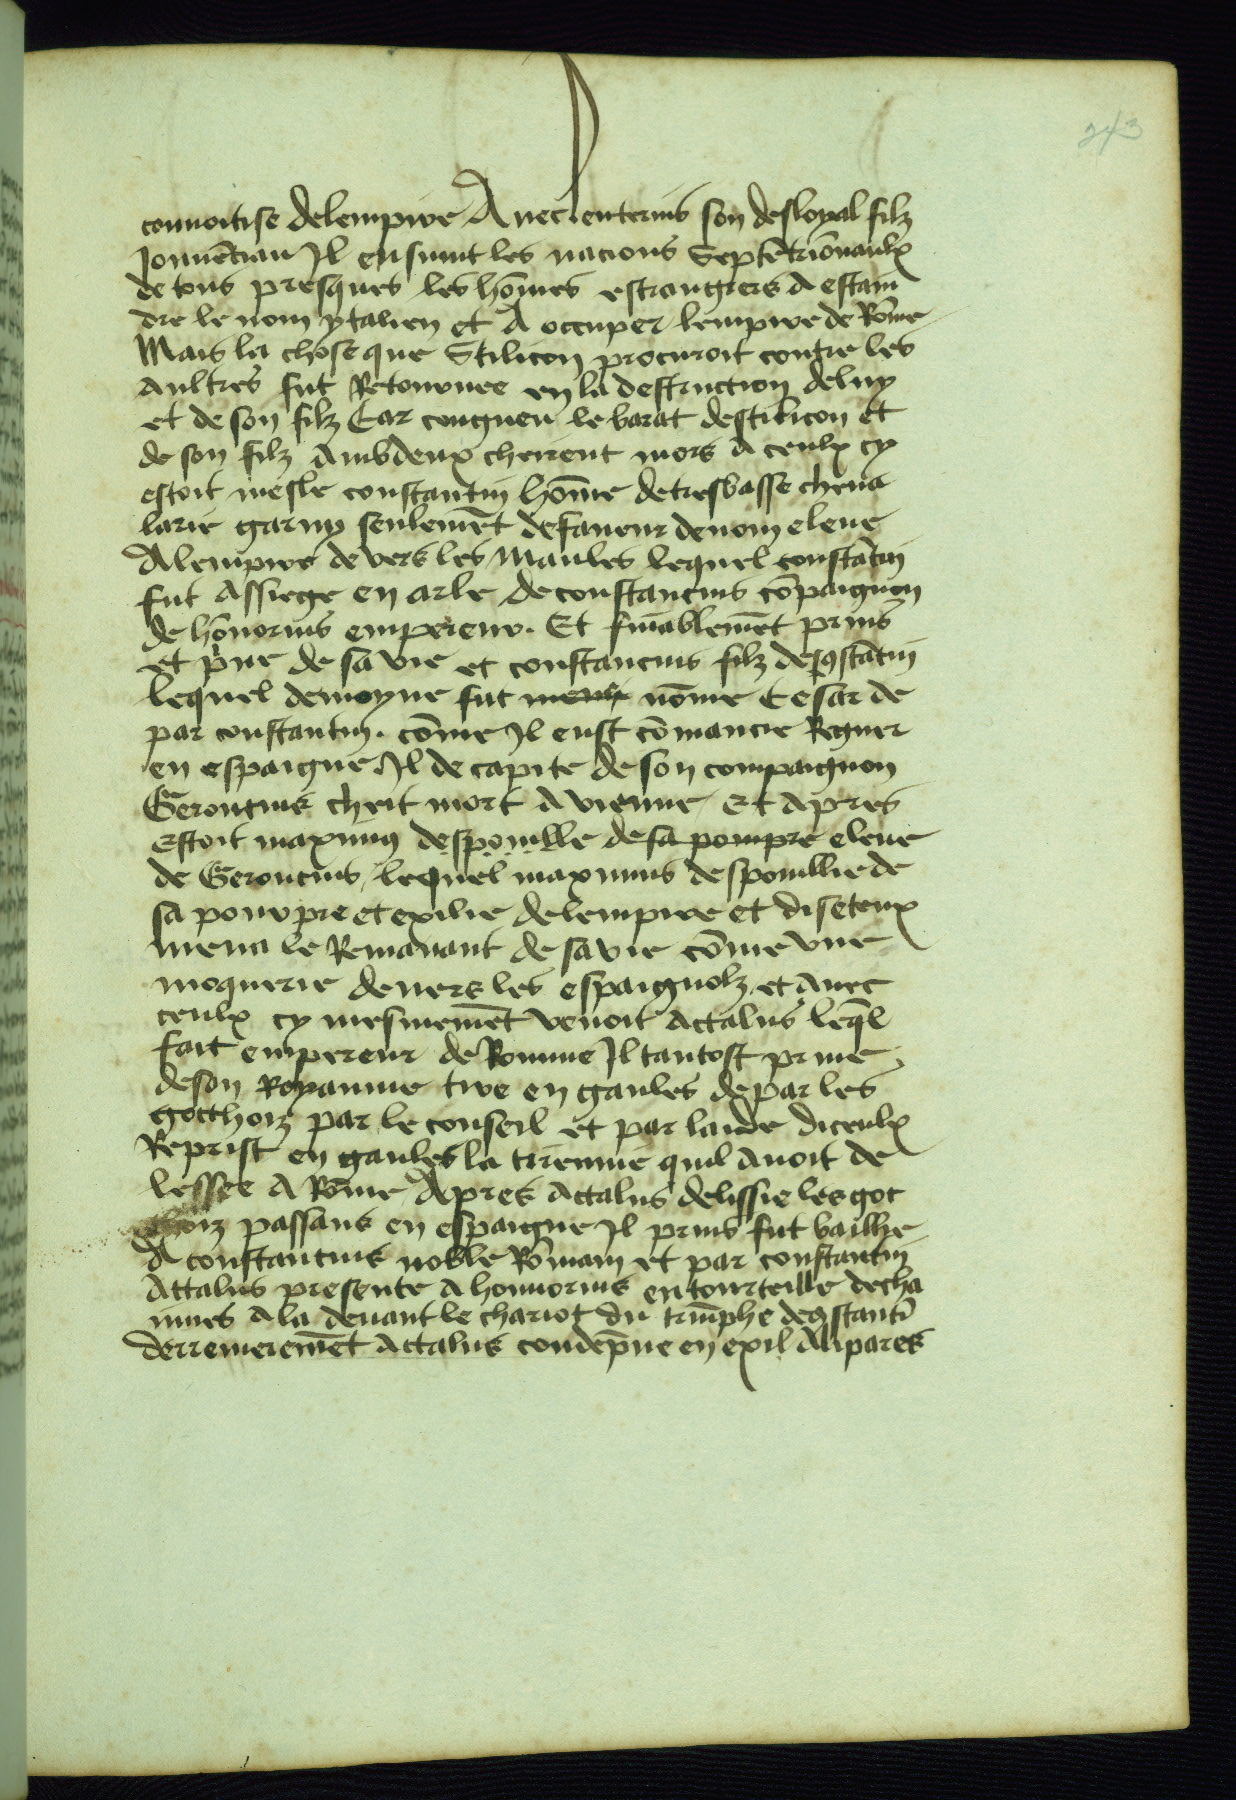 243
connoitise delempire Avec enterius son desloyal filz
Jonnēcian Il ensuiuit les nacions Septētriōnaulx
de tous presques les hōmes estrangiers A estain
dre le nom ytalien et A occuper lempire de Rōme
Mais la chose que Stilicon procuroit contre les
aultres fut Retournee en la destruction deluy
et de son filz Car congneu le barat destilicon et
de son filz Ambdeux cheirent mors A ceulx cy
estoit mesle constantin hōme detresbasse cheua
larie garny seulemēt defaueur denom eleue
Alempire de vers les Maules lequel constātin
fut Assiege en arle de constancius cōpaignon
de hōnorius empereur. Et finablemēt prins
et p̄ue de sa vie et constancius filz de 9stātin
lequel demoyne fut nōme Cesar de
par constantin. cōme Il eust cōmancie Regner
en espaigne Il de capite de son compaignon
Geroncius cheit mort A vienne Et Apres
Estoit maximus despouille de sa pompre eleue
de Geroncius, lequel maximus despouillie de
sa pourpre et exilie delempire et diseteux
mena le Remanant de sa vie cōme vne
moquerie deuers les espaignolz et Avec
ceulx cy mesmemēt venoit Actalus leq̄l
fait empereur de Romme Il tantost priue
deson Royaume tire en gaules depar les
gotthoiz par le conseil et par laide diceulx
Reprist en gaules la tirennie quil Auoit de
lessee A Rōme Apres Actalus delissie les got
thoiz passans en espaigne Il prins fut baillie
A constancius noble Rōmain et par constantin
Attalus presente A honnorius entourteille de cha
innes Ala deuant le chariot du triūphe de 9stantī
derrenieremēt Actalus condēpne en exil Alipares